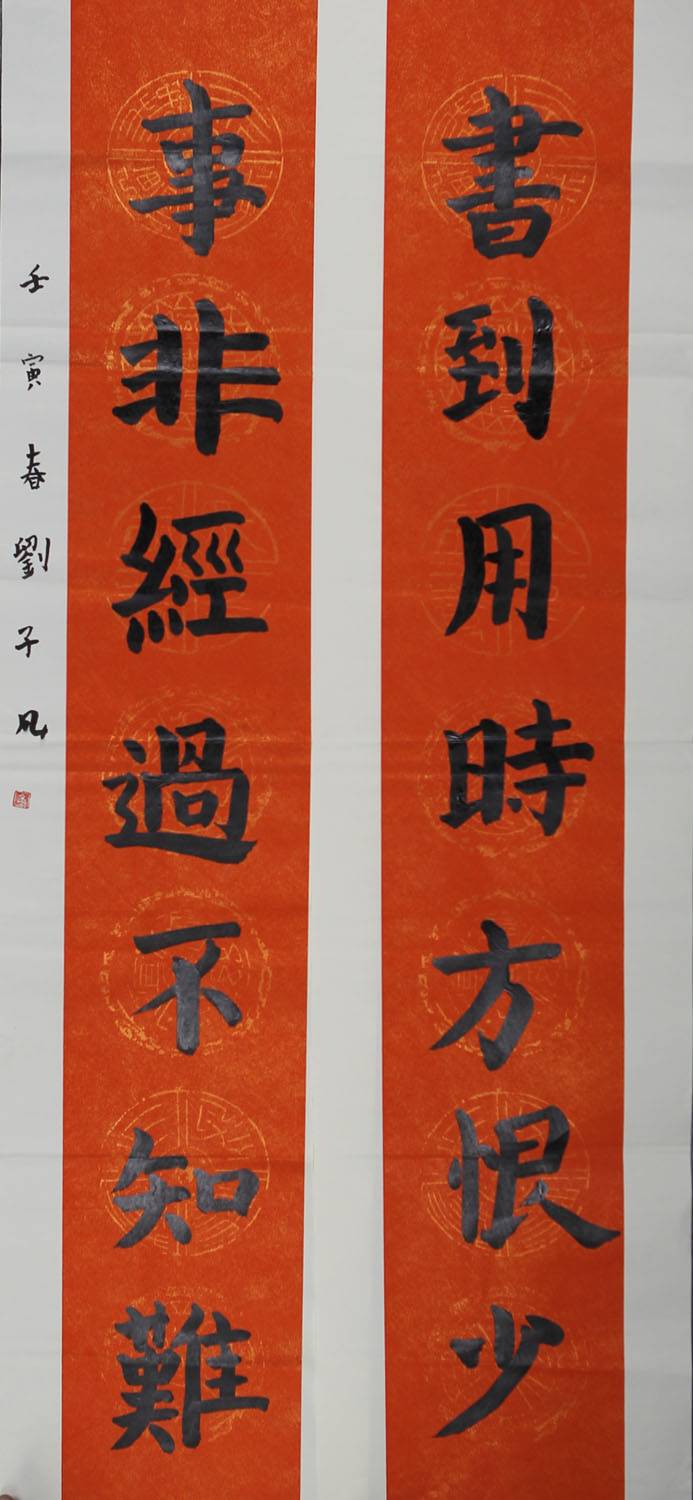 書到用時方恨少
事非經過不知難
壬寅春劉子凡